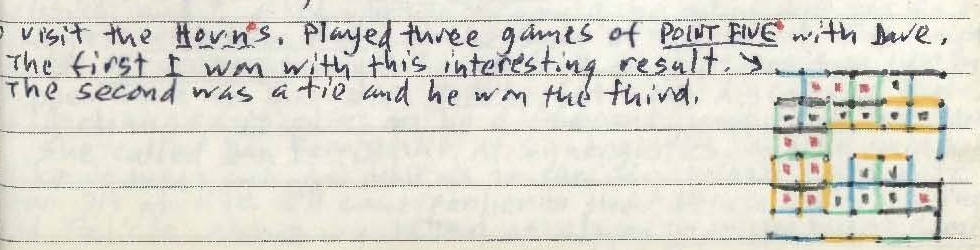 visit the Horn's. Played three games of POINT FIVE with Dave.
The first I won with this interesting result. →
The second was a tie and he won the third.